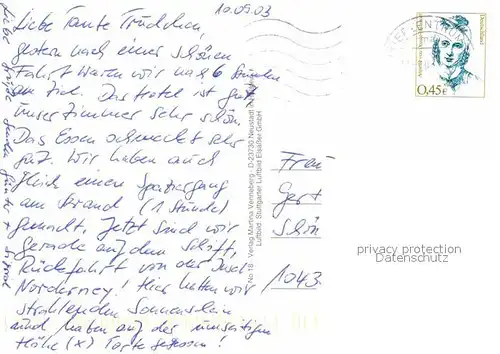 10.09.03
Liebe Tante Trudchen,
gestern nach einer schönen
Fahrt waren wir nach 6 Stunden
am Ziel. Das Hotel ist gut
unser Zimmer sehr schön.
Das Essen schmeckt sehr
gut. Wir haben auch
gleich einen Spaziergang
am Strand (1 Stunde)
gemacht. Jetzt sind wir
gerade auf dem Schiff,
Rückfahrt von der Insel
Norderney! Hier hatten wir
strahlenden Sonnenschein
und haben auf der umseitigen
Höhe (x) Torte gegessen!
Liebe Grüße senden Günter +
No 18 Verlag Martina Venneberg · D-23730 Neustadt
Luftbild: Stuttgarter Luftbild Elsäßer GmbH
Deutschland
0,45€
Frau
Gert
Schön
1043.
privacy protection
Datenschutz